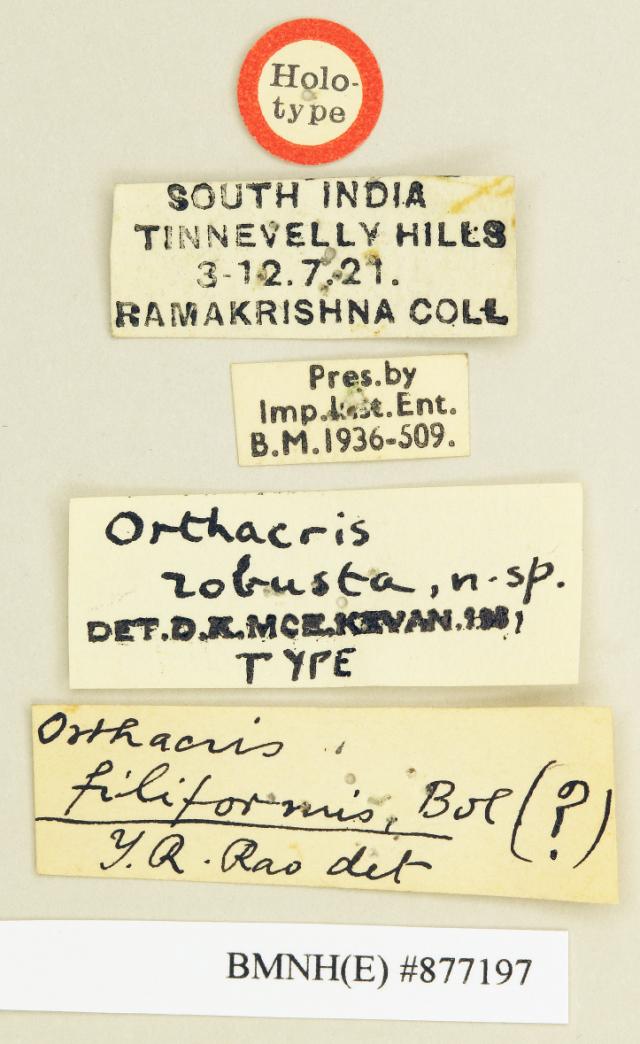 Holo-
type
SOUTH INDIA
TINNEVELLY HILLS
3-12.7.21.
RAMAKRISHNA COLL
Pres.by
Imp.Inst.Ent.
B.M.1936-509.
Orthacris
robusta, n.sp.
DET.D.K.MCE.KEVAN.
TYPE
Orthacris
filiformis, Bol (?)
Y.R. Rao det
BMNH(E) #877197